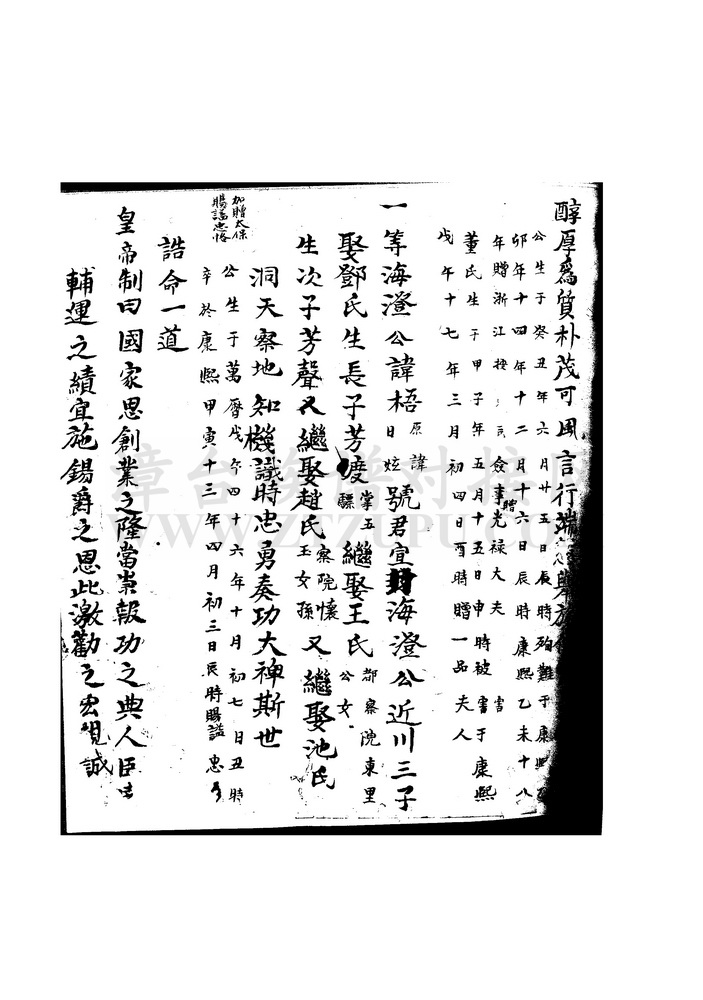 醇厚為質朴茂可風言行端
公生于癸丑年六月廿五日辰時殉難于康熙
卯年十四年十二月十六日辰時康熙乙未十八
年贈浙江按 僉事贈光祿大夫
董氏生于甲子年五月十五日申時被害于康熙
戊午十七年三月初四日酉時贈一品夫人
一等海澄公諱梧原諱日炫號君宣封海澄公近川三子
娶鄧氏生長子芳度掌五驃繼娶王氏都察院東里公女
生次子芳聲又繼娶趙氏察院懷玉女孫又繼娶池氏
洞天察地知機識時忠勇奏功大神斯世
公生于萬曆戊午四十六年十月初七日丑時
卒於康熙甲寅十三年四月初三日辰時賜諡忠
加贈太保
賜諡忠恪
誥命一道
皇帝制曰國家思創業之隆當崇報功之典人臣
輔運之績宜施錫爵之恩此激勸之宏規誠
章台 谱对接网
WWW.ZTZUPU.COM